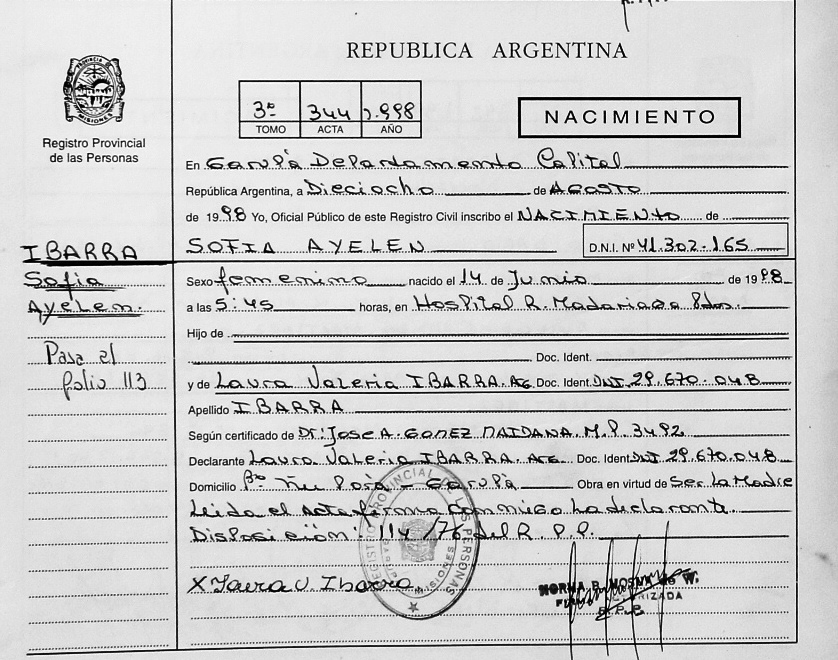 REPUBLICA ARGENTINA
PROVINCIA DE
MISIONES
Registro Provincial
de las Personas
3º 344 1.998
TOMO ACTA AÑO
NACIMIENTO
En Garupá Departamento Capital
República Argentina, a Dieciocho de AGOSTO
de 1998 Yo, Oficial Público de este Registro Civil inscribo el NACIMIENTO de
SOFIA AYELEN D.N.I. Nº 41.302.165
IBARRA
Sofia
Ayelen.
Pasa al
folio 113
Sexo femenino nacido el 14 de Junio de 1998
a las 5:45 horas, en Hospital R. Madariaga Pdas.
Hijo de
Doc. Ident.
y de Laura Valeria IBARRA. Arg. Doc. Ident. DNI. 29.670.048
Apellido IBARRA
Según certificado de Dr: Jose A. GOMEZ MAIDANA M.P. 3492
Declarante Laura Valeria IBARRA Arg. Doc. Ident. DNI 29.670.048
Domicilio Bº Ñu Porá - Garupá Obra en virtud de Ser La Madre
Leida el Acta firma conmigo La declarante.
Disposición: 114/76 del R.P.P.
REGISTRO PROVINCIAL DE LAS PERSONAS
MISIONES
X Laura V Ibarra
NORMA B. de W.
FIRMA AUTORIZADA
R.P.P.